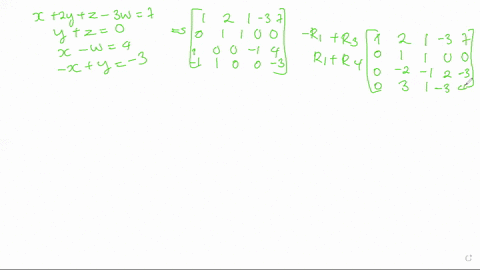 x + 2y + z - 3w = 7
y + z = 0
x - w = 4
-x + y = -3
⇒
1 2 1 -3 7
0 1 1 0 0
1 0 0 -1 4
-1 1 0 0 -3
-R1 + R3
R1 + R4
1 2 1 -3 7
0 1 1 0 0
0 -2 -1 2 -3
0 3 1 -3